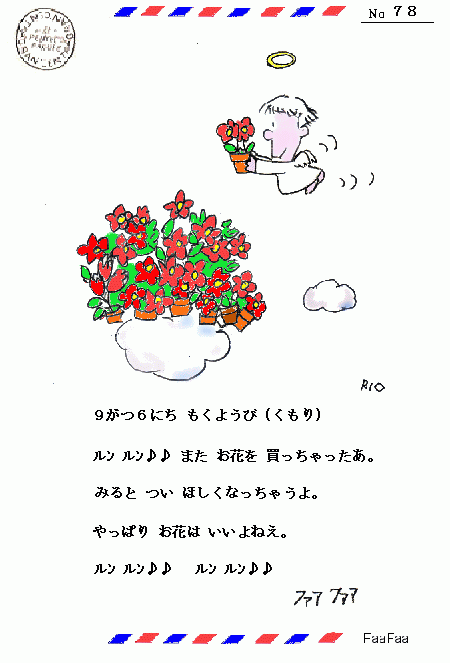 No 78
RIO
9がつ6にち もくようび (くもり)
ルン ルン♪♪ また お花を 買っちゃったあ。
みると つい ほしくなっちゃうよ。
やっぱり お花は いいよねえ。
ルン ルン♪♪ ルン ルン♪♪
ファア ファア
FaaFaa